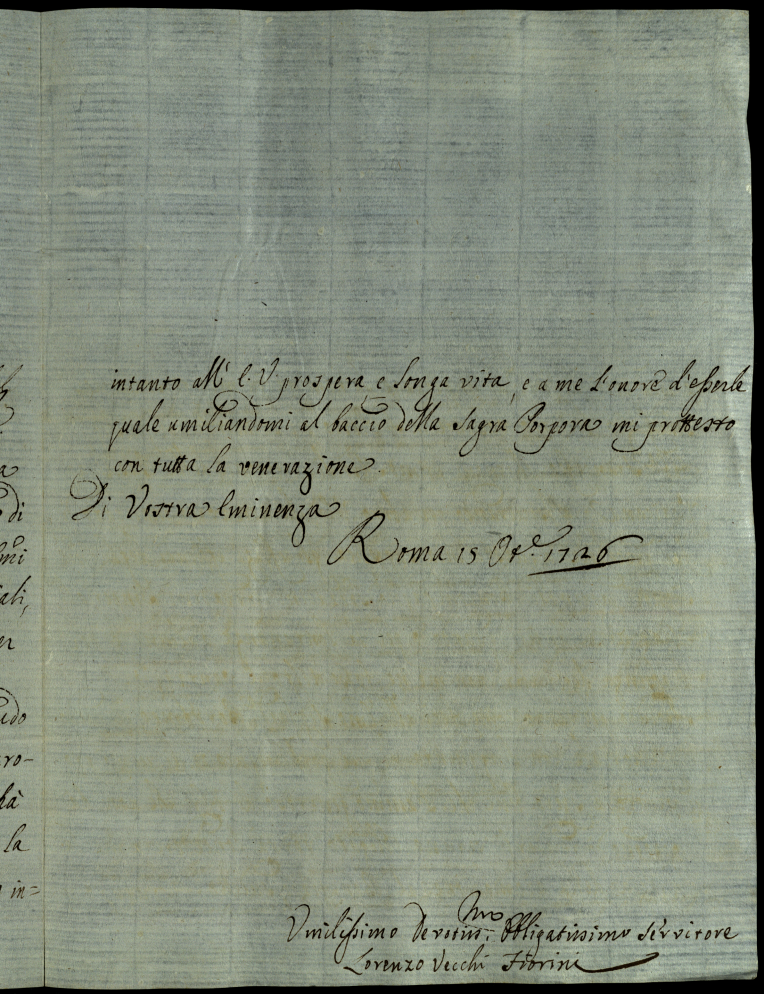 intanto all' E. V prospera e longa vita, e a me l'onore d'esserle
quale umiliandomi al baccio della Sagra Porpora mi prottesto
con tutta la venerazione.
Di Vostra Eminenza
Roma 15 Ot.e 1726
a
di
mi
ali,
er
udo
ro-
hà
la
in=
Vmilissimo Devotiss:mo Obligatissimo Servitore
Lorenzo Vecchi Fiorini